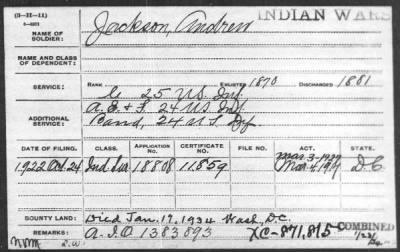 (3-II-11)
INDIAN WARS
NAME OF SOLDIER: Jackson, Andrew
NAME AND CLASS OF DEPENDENT:
SERVICE: RANK ENLISTED 1870 DISCHARGED 1881
25 US. Inf
ADDITIONAL SERVICE: A. E & F. 24 US Inf
Band, 24 U.S. Inf.
DATE OF FILING. CLASS. APPLICATION NO. CERTIFICATE NO. FILE NO. ACT. STATE.
Mar. 3-1927
1922 Oct. 24 Ind Sur 18808 11859 Mar 4, 1917 D.C.
BOUNTY LAND: Died Jan. 17, 1934 Wash, D.C.
COMBINED
REMARKS: A.I.O 1383893 XC-871,815